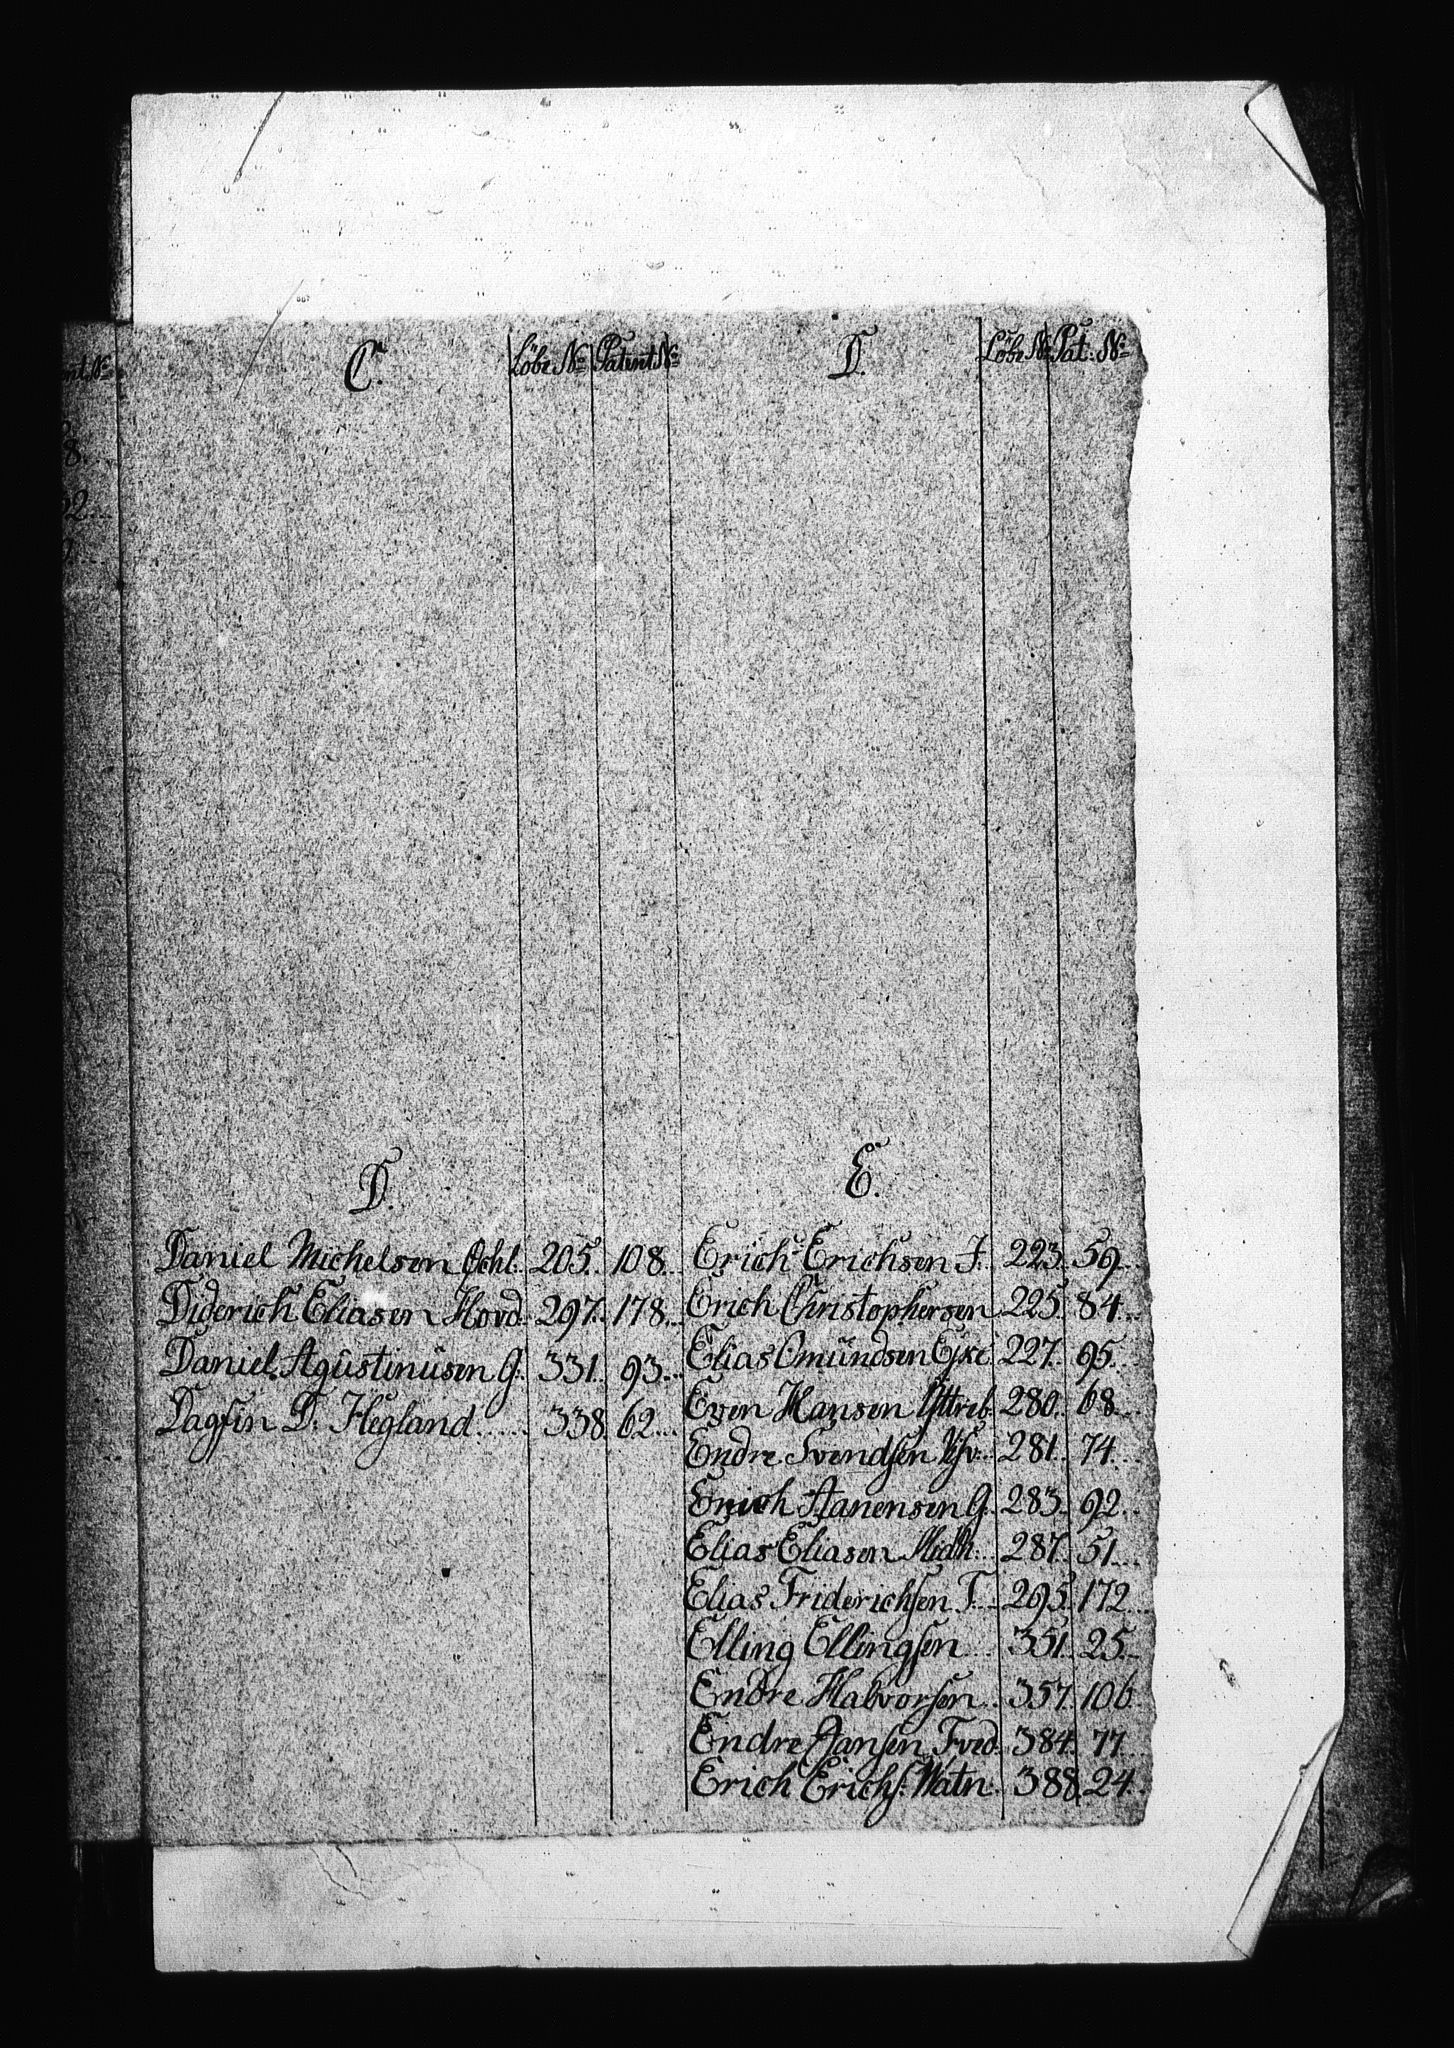 C. Löbe No Patent No
D. Löbe No Pat: No
nt No
8.
2
D.
Daniel Michelsen Ochl: 205. 108.
Diderich Eliasen Hovd: 297. 178.
Daniel Agustinüsen G: 331. 93.
Dagfin D: Hegland 338. 62.
E.
Erich Erichsen J. 223. 59.
Erich Christophersen 225. 84.
Elias Omündsen 227. 95.
Even Hansen Yttreb: 280. 68.
Endre Svendsen 281. 74.
Erich Aanensen G. 283. 92.
Elias Eliasen Midh: 287. 51.
Elias Friderichsen T. 295. 172.
Elling Ellingsen 351. 25.
Endre Halvorsen 357. 106
Endre Jansen Tved: 384. 77.
Erich Erichs: Watn: 388. 24.